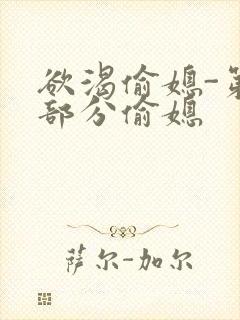 欲渴偷媳-第
部分偷媳
萨尔-加尔